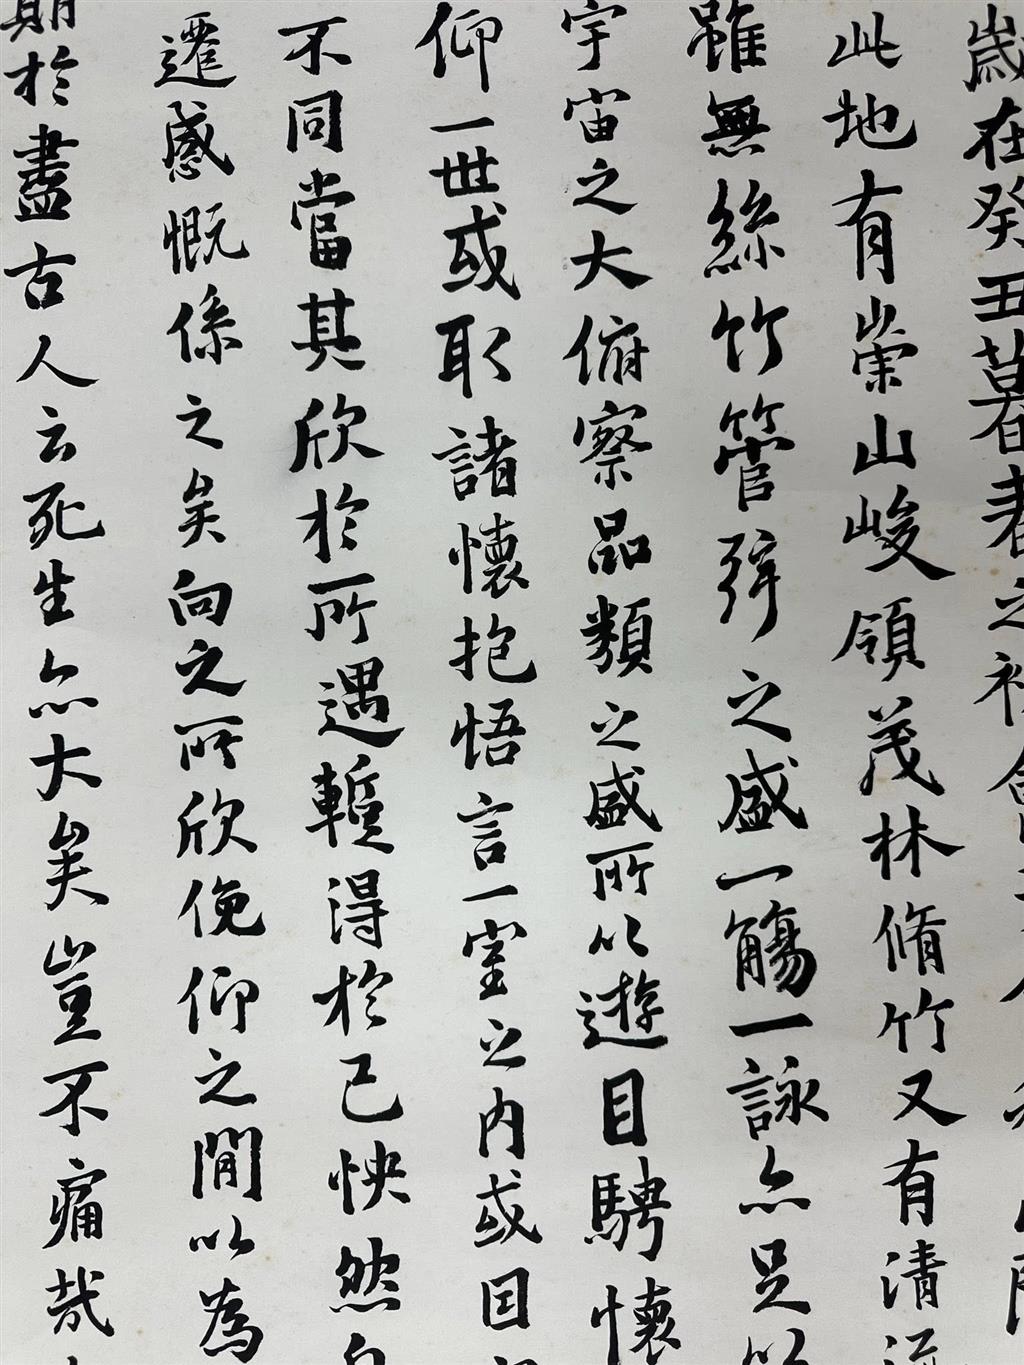 歲在癸丑暮春之初會
此地有崇山峻領茂林脩竹又有清流
雖無絲竹管弦之盛一觴一詠亦足以
宇宙之大俯察品類之盛所以遊目騁懷
仰一世或取諸懷抱悟言一室之內或因
不同當其欣於所遇蹔得於己怏然自
遷感慨係之矣向之所欣俛仰之閒以為
期於盡古人云死生亦大矣豈不痛哉